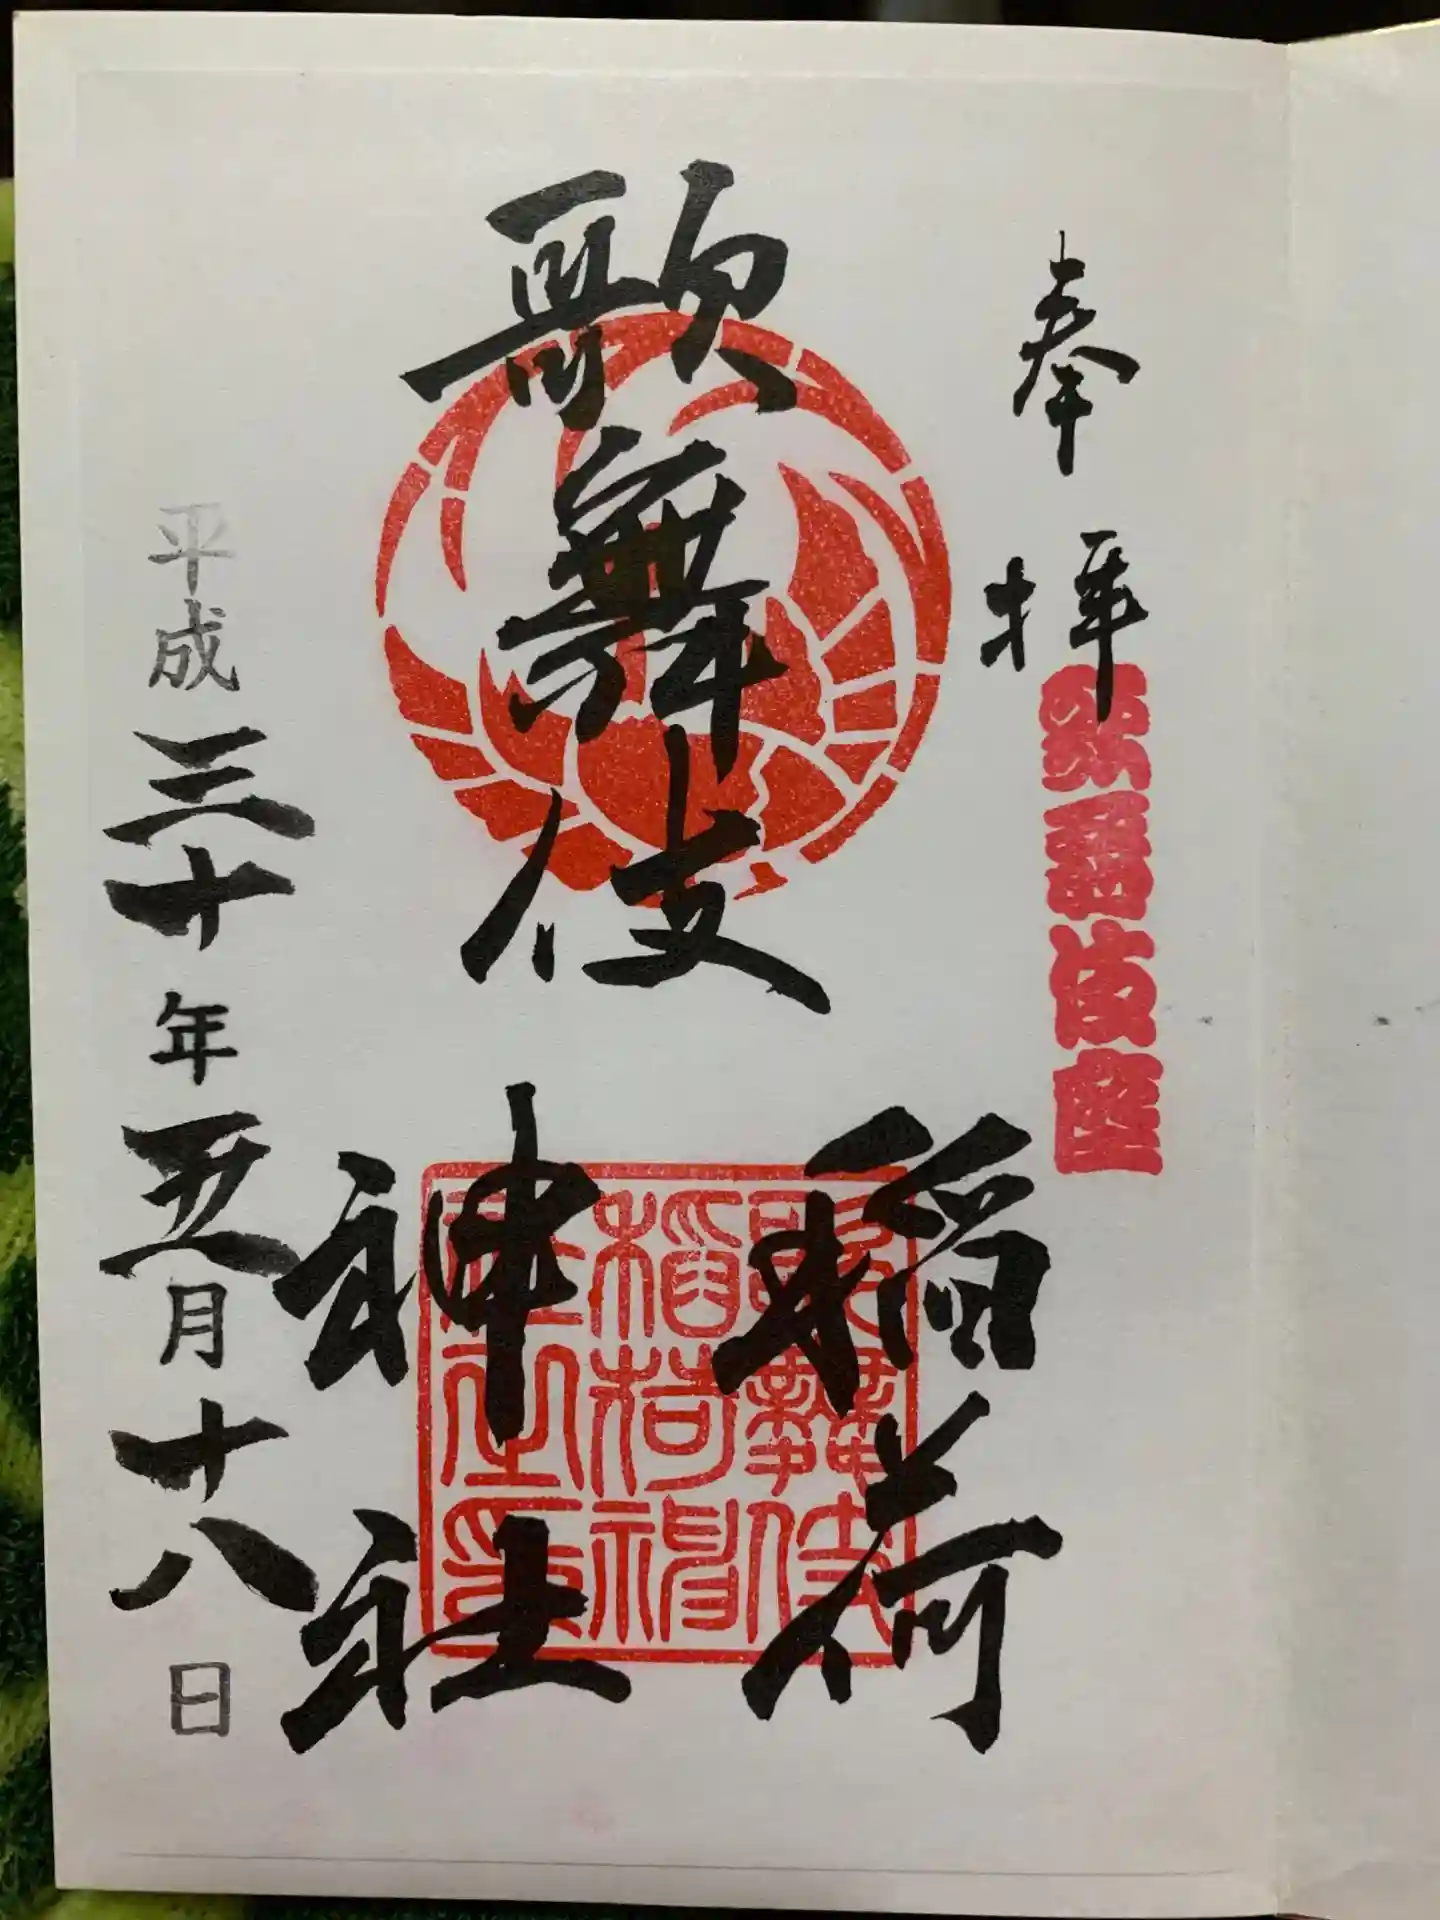 奉拝
歌舞伎座
歌舞伎
稲荷
神社
歌舞伎
稲荷神
社之印
平成三十年五月廿八日